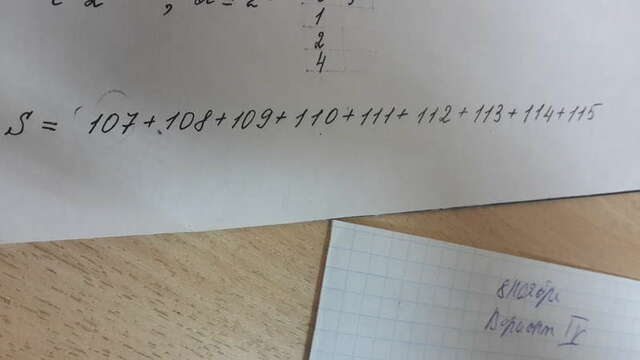 1
2
4
S = 107 + 108 + 109 + 110 + 111 + 112 + 113 + 114 + 115
Вариант IV